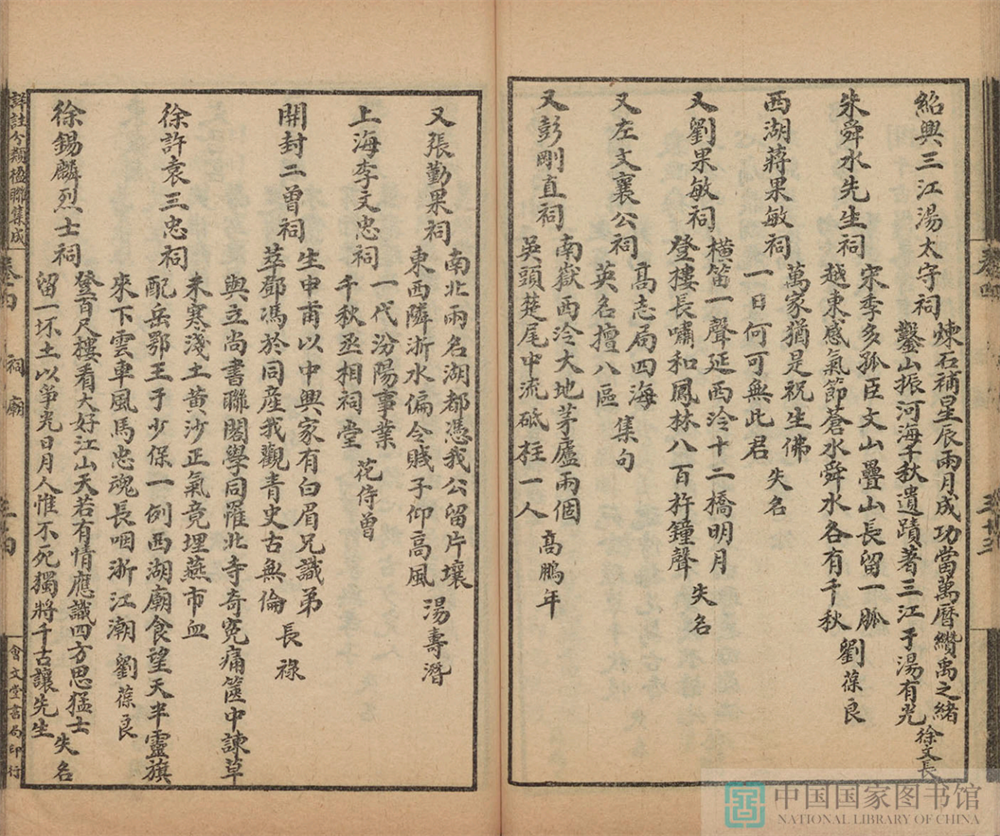 紹興三江湯太守祠
煉石補星辰兩月成功當萬曆纘禹之緒
鑿山振河海千秋遺蹟著三江于湯有光
徐文長
朱舜水先生祠
宋季多孤臣文山疊山長留一脈
越東感氣節蒼水舜水各有千秋
劉葆良
西湖蔣果敏祠
萬家猶是祝生佛
一日何可無此君
失名
又劉果敏祠
橫笛一聲延西泠十二橋明月
登樓長嘯和鳳林八百杵鐘聲
失名
又左文襄公祠
高志局四海
英名擅八區
集句
又彭剛直祠
南嶽西泠大地茅廬兩個
吳頭楚尾中流砥柱一人
高鵬年
又張勤果祠
南北兩名湖都憑我公留片壤
東西隣浙水偏令賤子仰高風
湯壽潛
上海李文忠祠
一代汾陽事業
千秋丞相祠堂
花侍曾
開封二曾祠
生申甫以中興家有白眉兄識弟
萃鄧馮於同産我觀青史古無倫
長祿
徐許袁三忠祠
與立尚書聯閣學同罹北寺奇冤痛篋中諫草
未寒淺土黃沙正氣竟埋燕市血
配岳鄂王于少保一例西湖廟食望天半靈旗
來下雲車風馬忠魂長咽浙江潮
劉葆良
徐錫麟烈士祠
登百尺樓看大好江山天若有情應識四方思猛士
留一坏土以爭光日月人惟不死獨將千古讓先生
失名
詳註分類楹聯集成
卷四
祠廟
會文堂書局印行
中国国家图书馆
NATIONAL LIBRARY OF CHINA